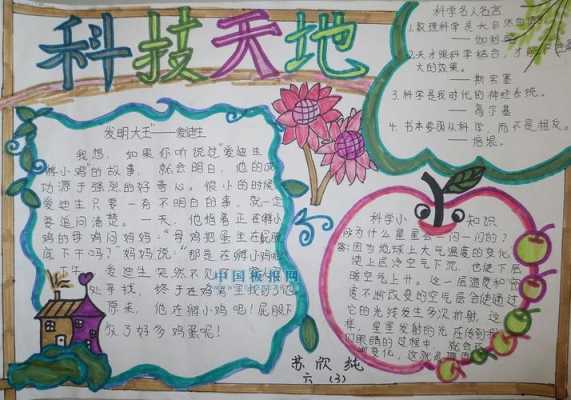 科技天地
发明大王"——爱迪生
我想,如果你听说过"爱迪生
孵小鸡"的故事,就会明白,他的成
功源于强烈的好奇心。很小的时候
爱迪生只要一有不明白的事,就一定
要追问清楚。一天,他指着正在孵小
鸡的母鸡问妈妈:"母鸡把蛋坐在屁股
底下干吗?"妈妈说:"那是在孵小鸡呢
下午,爱迪生突然不见
处寻找,终于在鸡窝里找到了他
原来,他在孵小鸡吧!屁股下
放了好多鸡蛋呢!
中国板报网
科学名人名言
1.数理科学是大自然的
——伽利略
2.天才跟科学结合,才能
大的效果。
——斯宾塞
3.科学是我时代的神经系统。
——高尔基
4.书本要驱从科学,而不是相反。
——培根。
科学小知识
问为什么星星会一闪一闪的?
答:因为地球上大气温度的变化
使上层冷空气下沉,也使下层
暖空气上升。这一层温度和密
度不断改变的空气层会使通过
它的光线发生多次折射,这
样,星星发射的光在传到我
们眼睛的过程中,就会
变化,这就
苏欣纯
六(3)